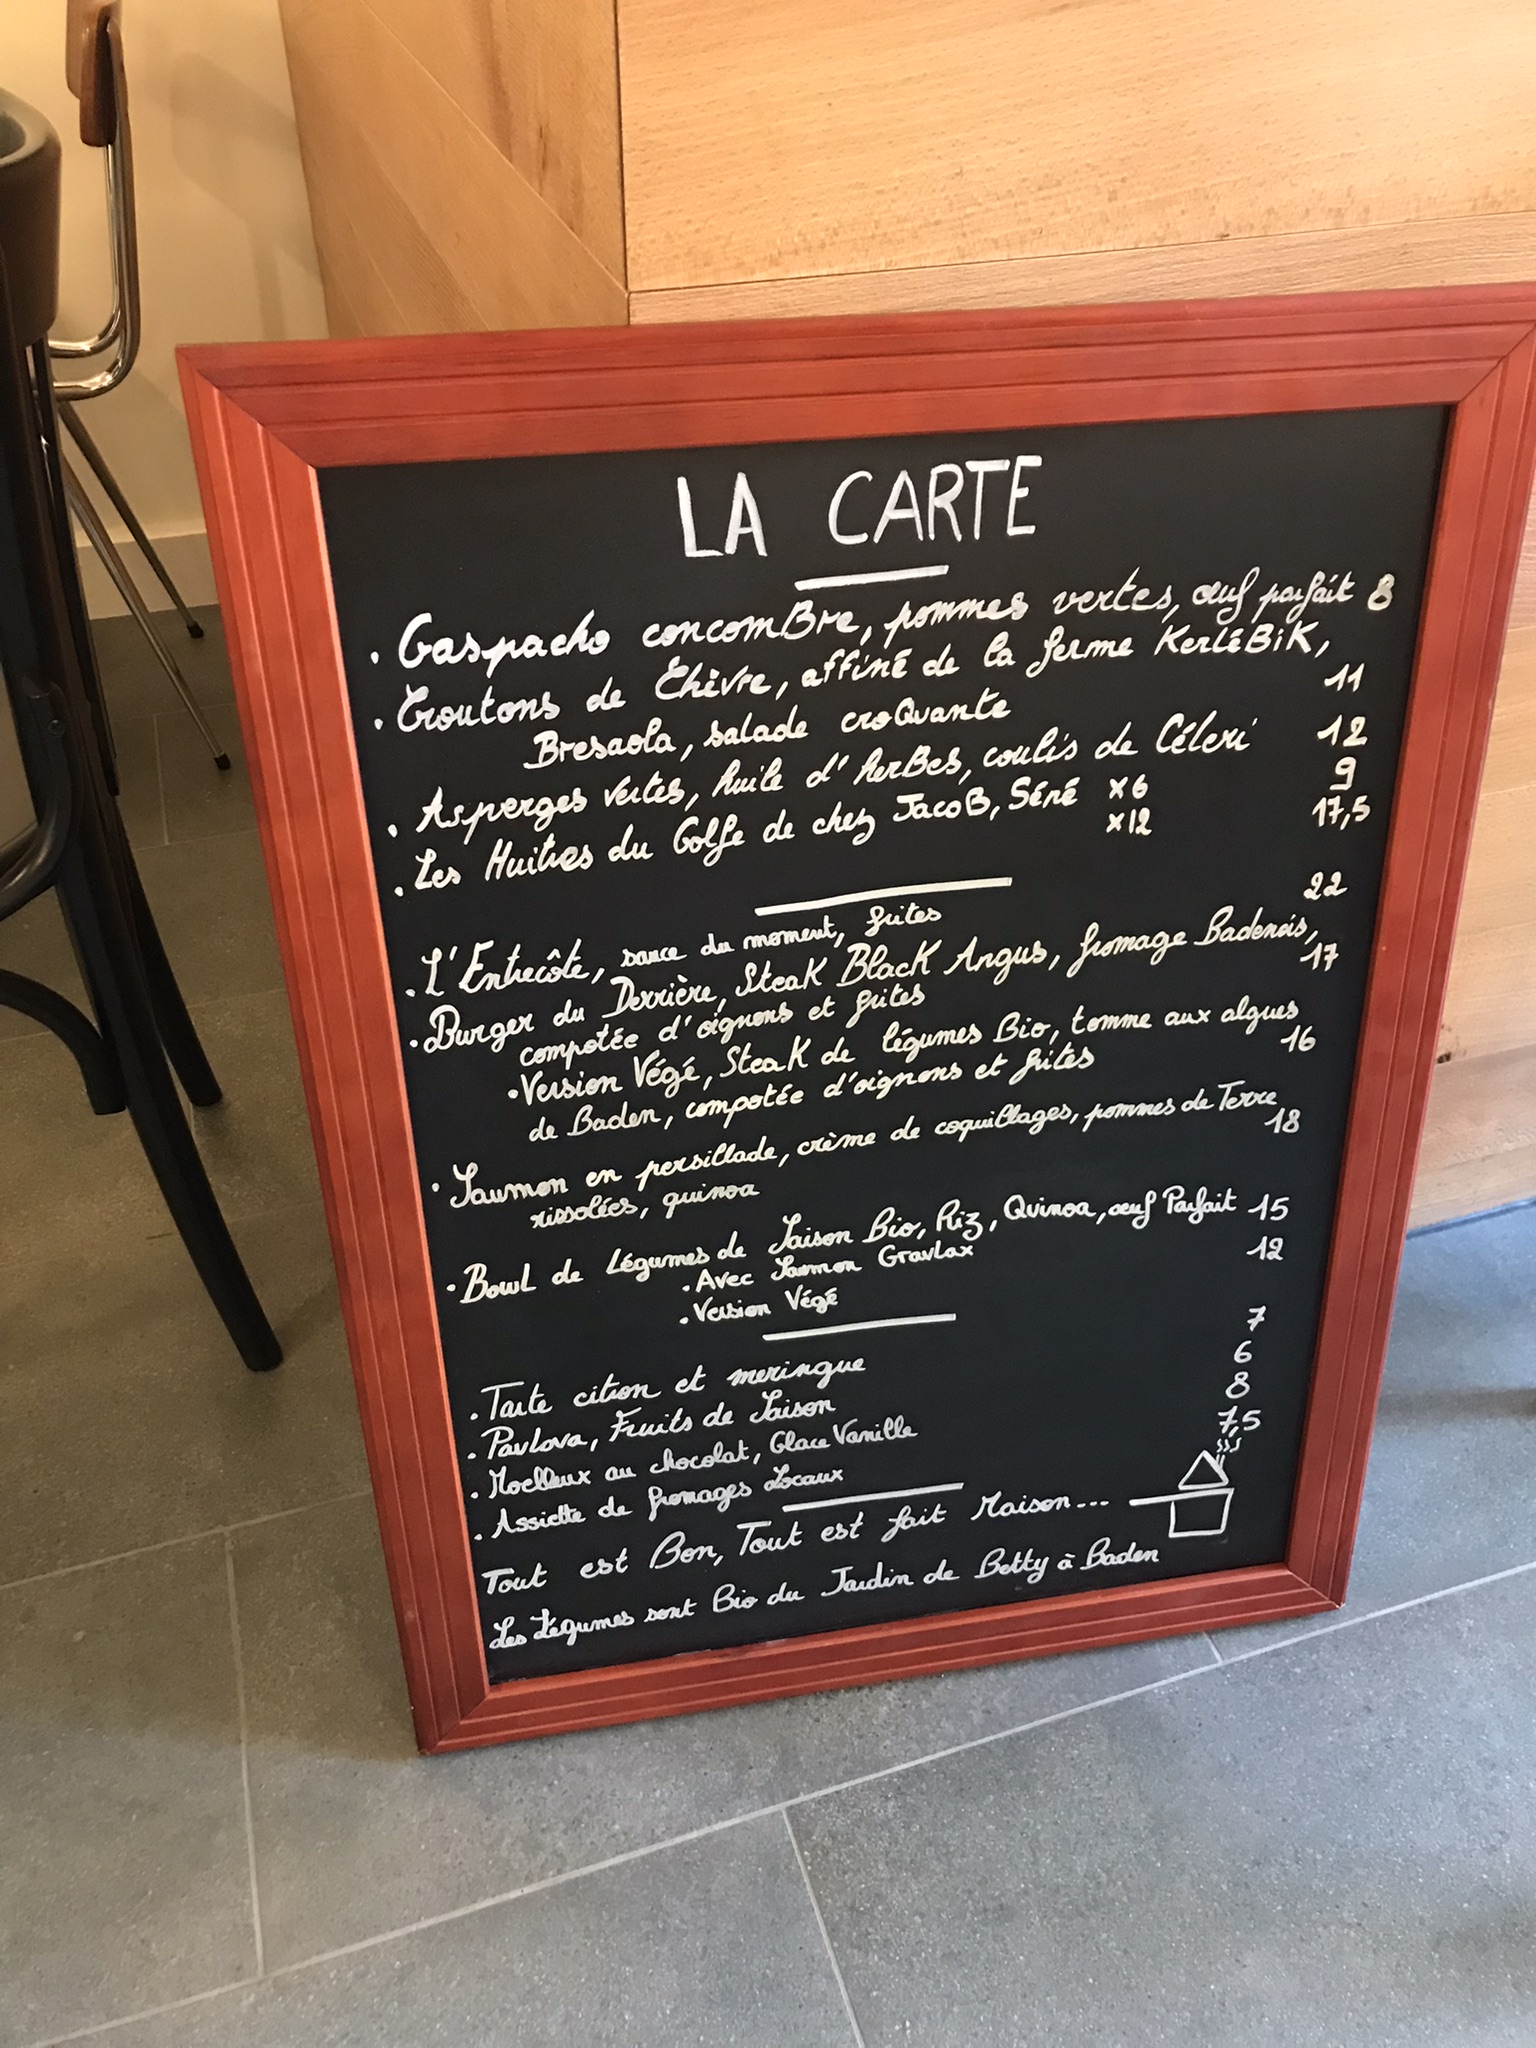 LA CARTE
• Gaspacho concomBre, pommes vertes, œuf parfait 8
• Croutons de Chèvre, affiné de la ferme KerléBiK,
Bresaola, salade croQuante 11
• Asperges vertes, huile d'herBes, coulis de Céleri 12
• Les Huitres du Golfe de chez JacoB, Séné x6 9
x12 17,5
• L'Entrecôte, sauce du moment, frites 22
• Burger du Derrière, SteaK BlacK Angus, fromage Badenois,
compotée d'oignons et frites 17
• Version Végé, SteaK de légumes Bio, tomme aux algues
de Baden, compotée d'oignons et frites 16
• Saumon en persillade, crème de coquillages, pommes de Terre
rissolées, quinoa 18
• Bowl de Légumes de Saison Bio, Riz, Quinoa, œuf Parfait
• Avec Saumon Gravlax 15
• Version Végé 12
• Tarte citron et meringue 7
• Pavlova, Fruits de Saison 6
• Moelleux au chocolat, Glace Vanille 8
• Assiette de fromages Locaux 7,5
Tout est Bon, Tout est fait Maison...
Les Légumes sont Bio du Jardin de Betty à Baden